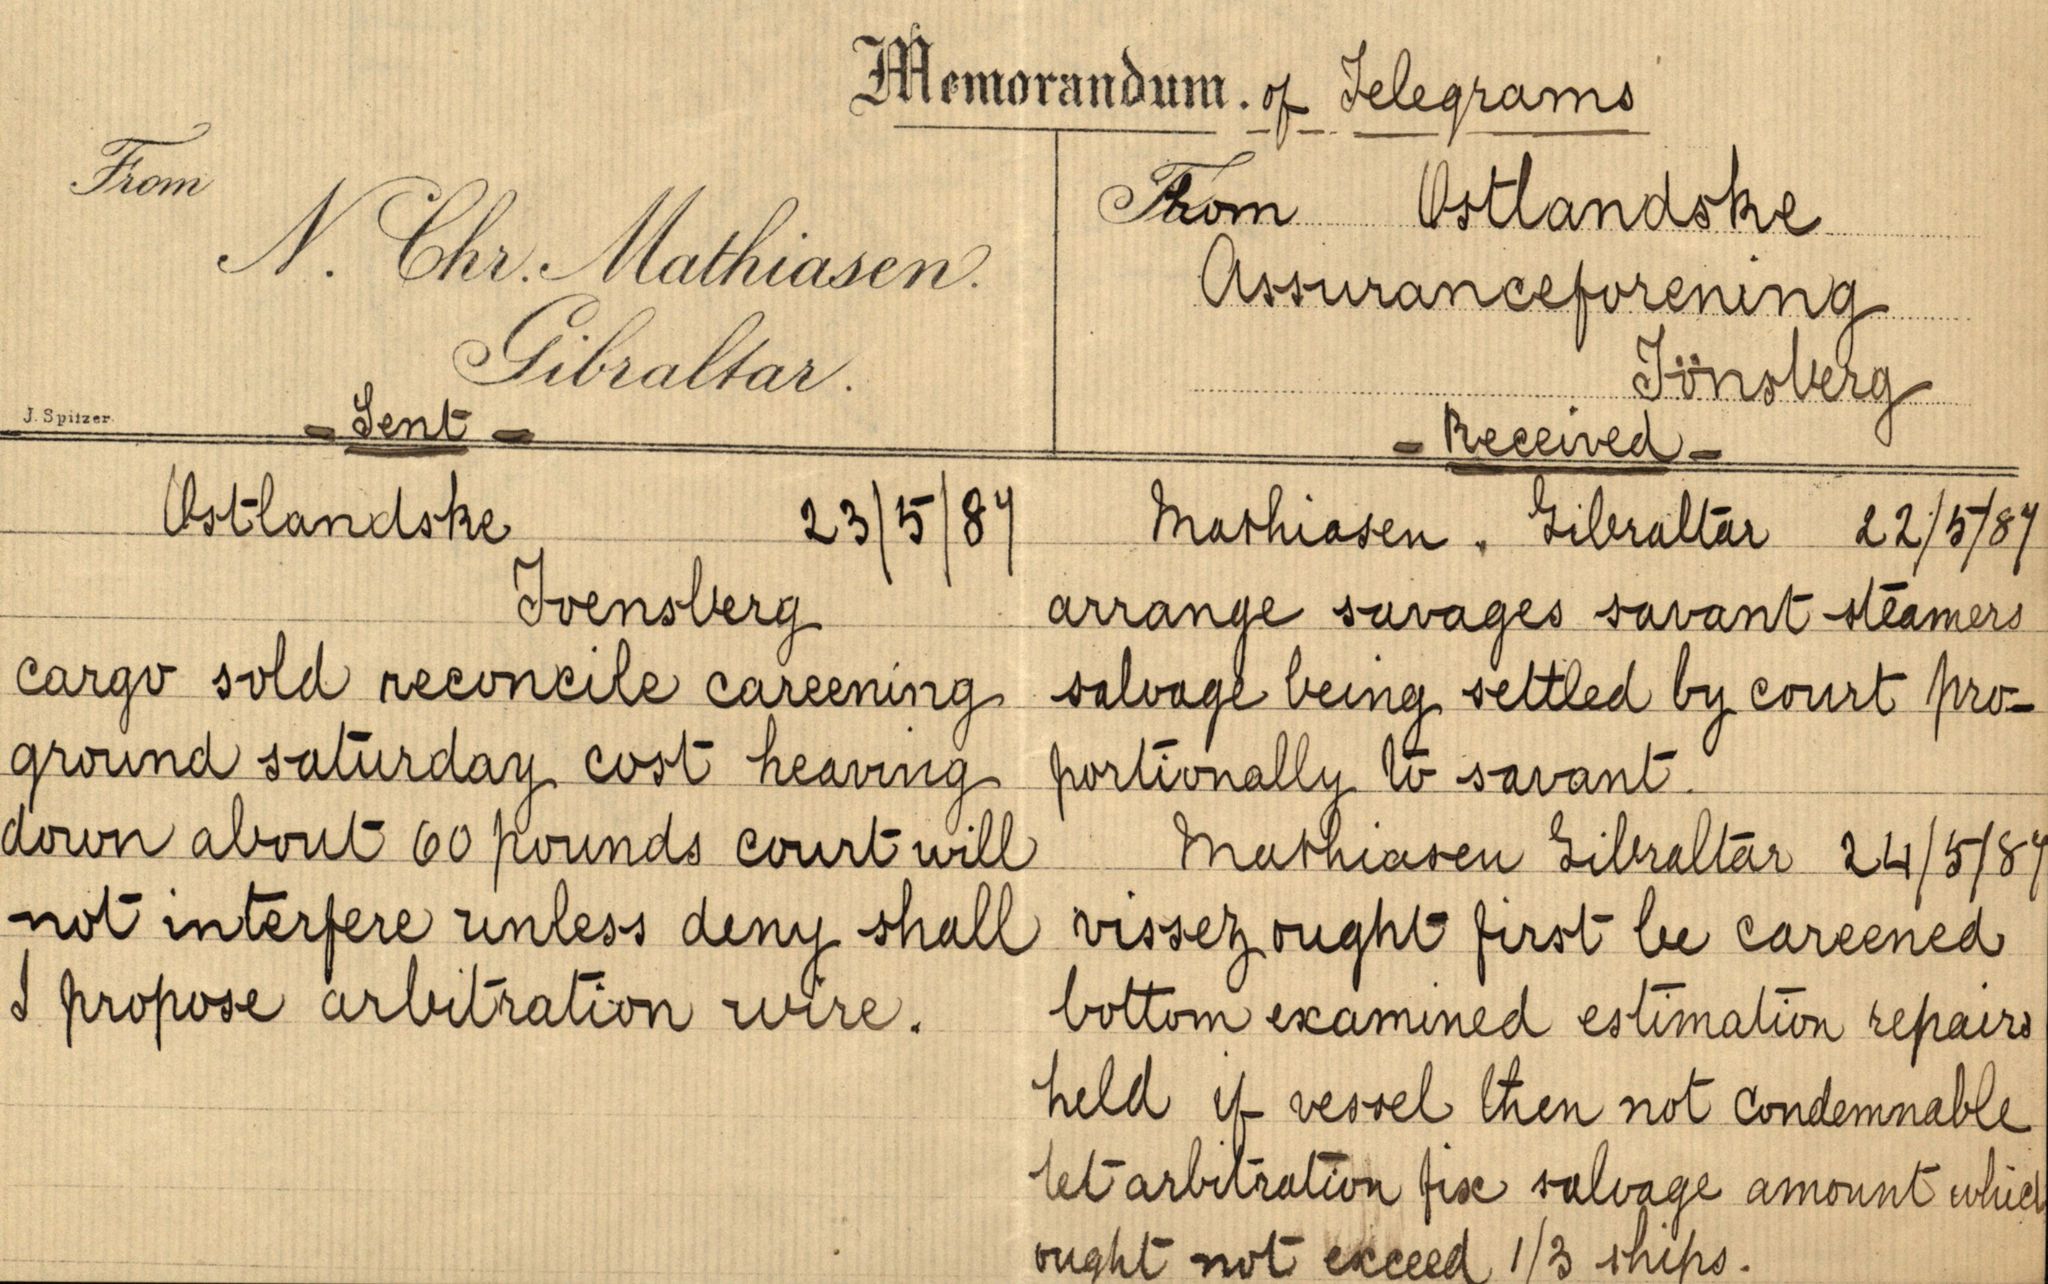 Memorandum. of Telegrams
From
N. Chr. Mathiasen.
Gibraltar.
J. Spitzer.
From Ostlandske
Assuranceforening
Tönsberg
- Sent -
Ostlandske 23/5/87
Toensberg
cargo sold reconcile careening
ground saturday cost heaving
down about 60 pounds court will
not interfere unless deny shall
I propose arbitration wire.
- Received -
Mathiasen. Gibraltar 22/5/87
arrange savages savant steamers
salvage being settled by court pro-
portionally to savant.
Mathiasen Gibraltar 24/5/87
vissez ought first be careened
bottom examined estimation repairs
held if vessel then not condemnable
let arbitration fix salvage amount which
ought not exceed 1/3 ships.